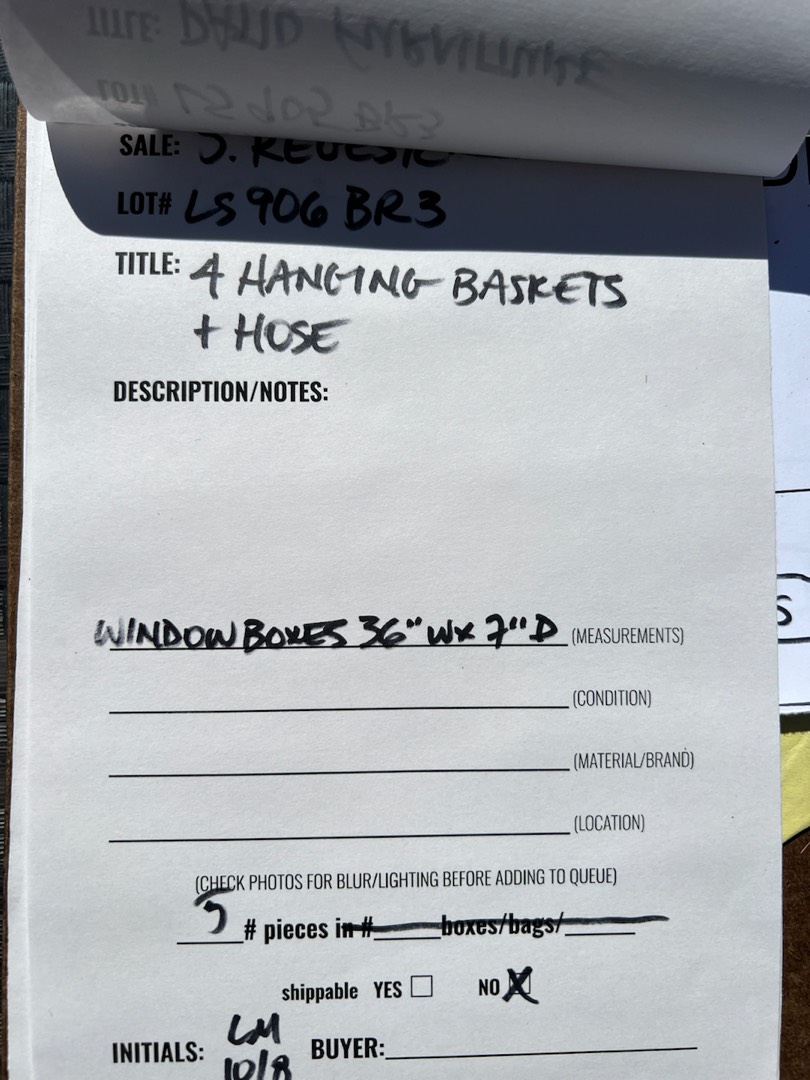 TITLE: PATIO FURNITURE
LOT# LS 905 BR3
SALE: J.
LOT# LS 906 BR3
TITLE: 4 HANGING BASKETS
+ HOSE
DESCRIPTION/NOTES:
WINDOW BOXES 36" W x 7" D (MEASUREMENTS)
(CONDITION)
(MATERIAL/BRAND)
(LOCATION)
(CHECK PHOTOS FOR BLUR/LIGHTING BEFORE ADDING TO QUEUE)
5 # pieces in # boxes/bags/
shippable YES NO X
S
INITIALS: LM BUYER:
10/8